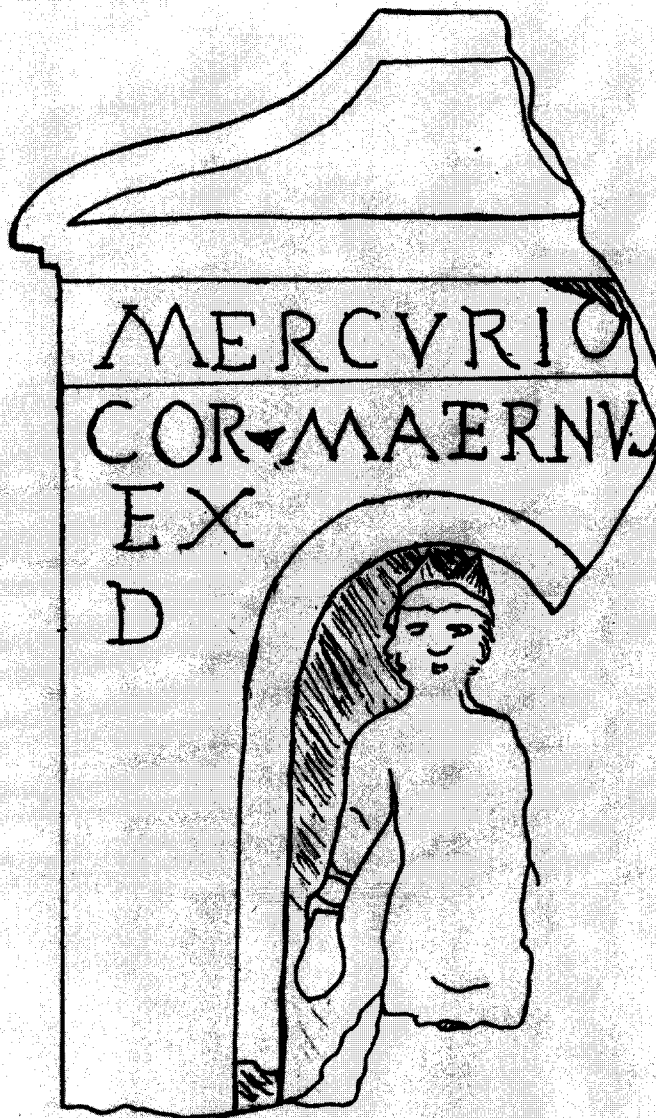 MERCVRIO
COR MAERNVS
EX
D